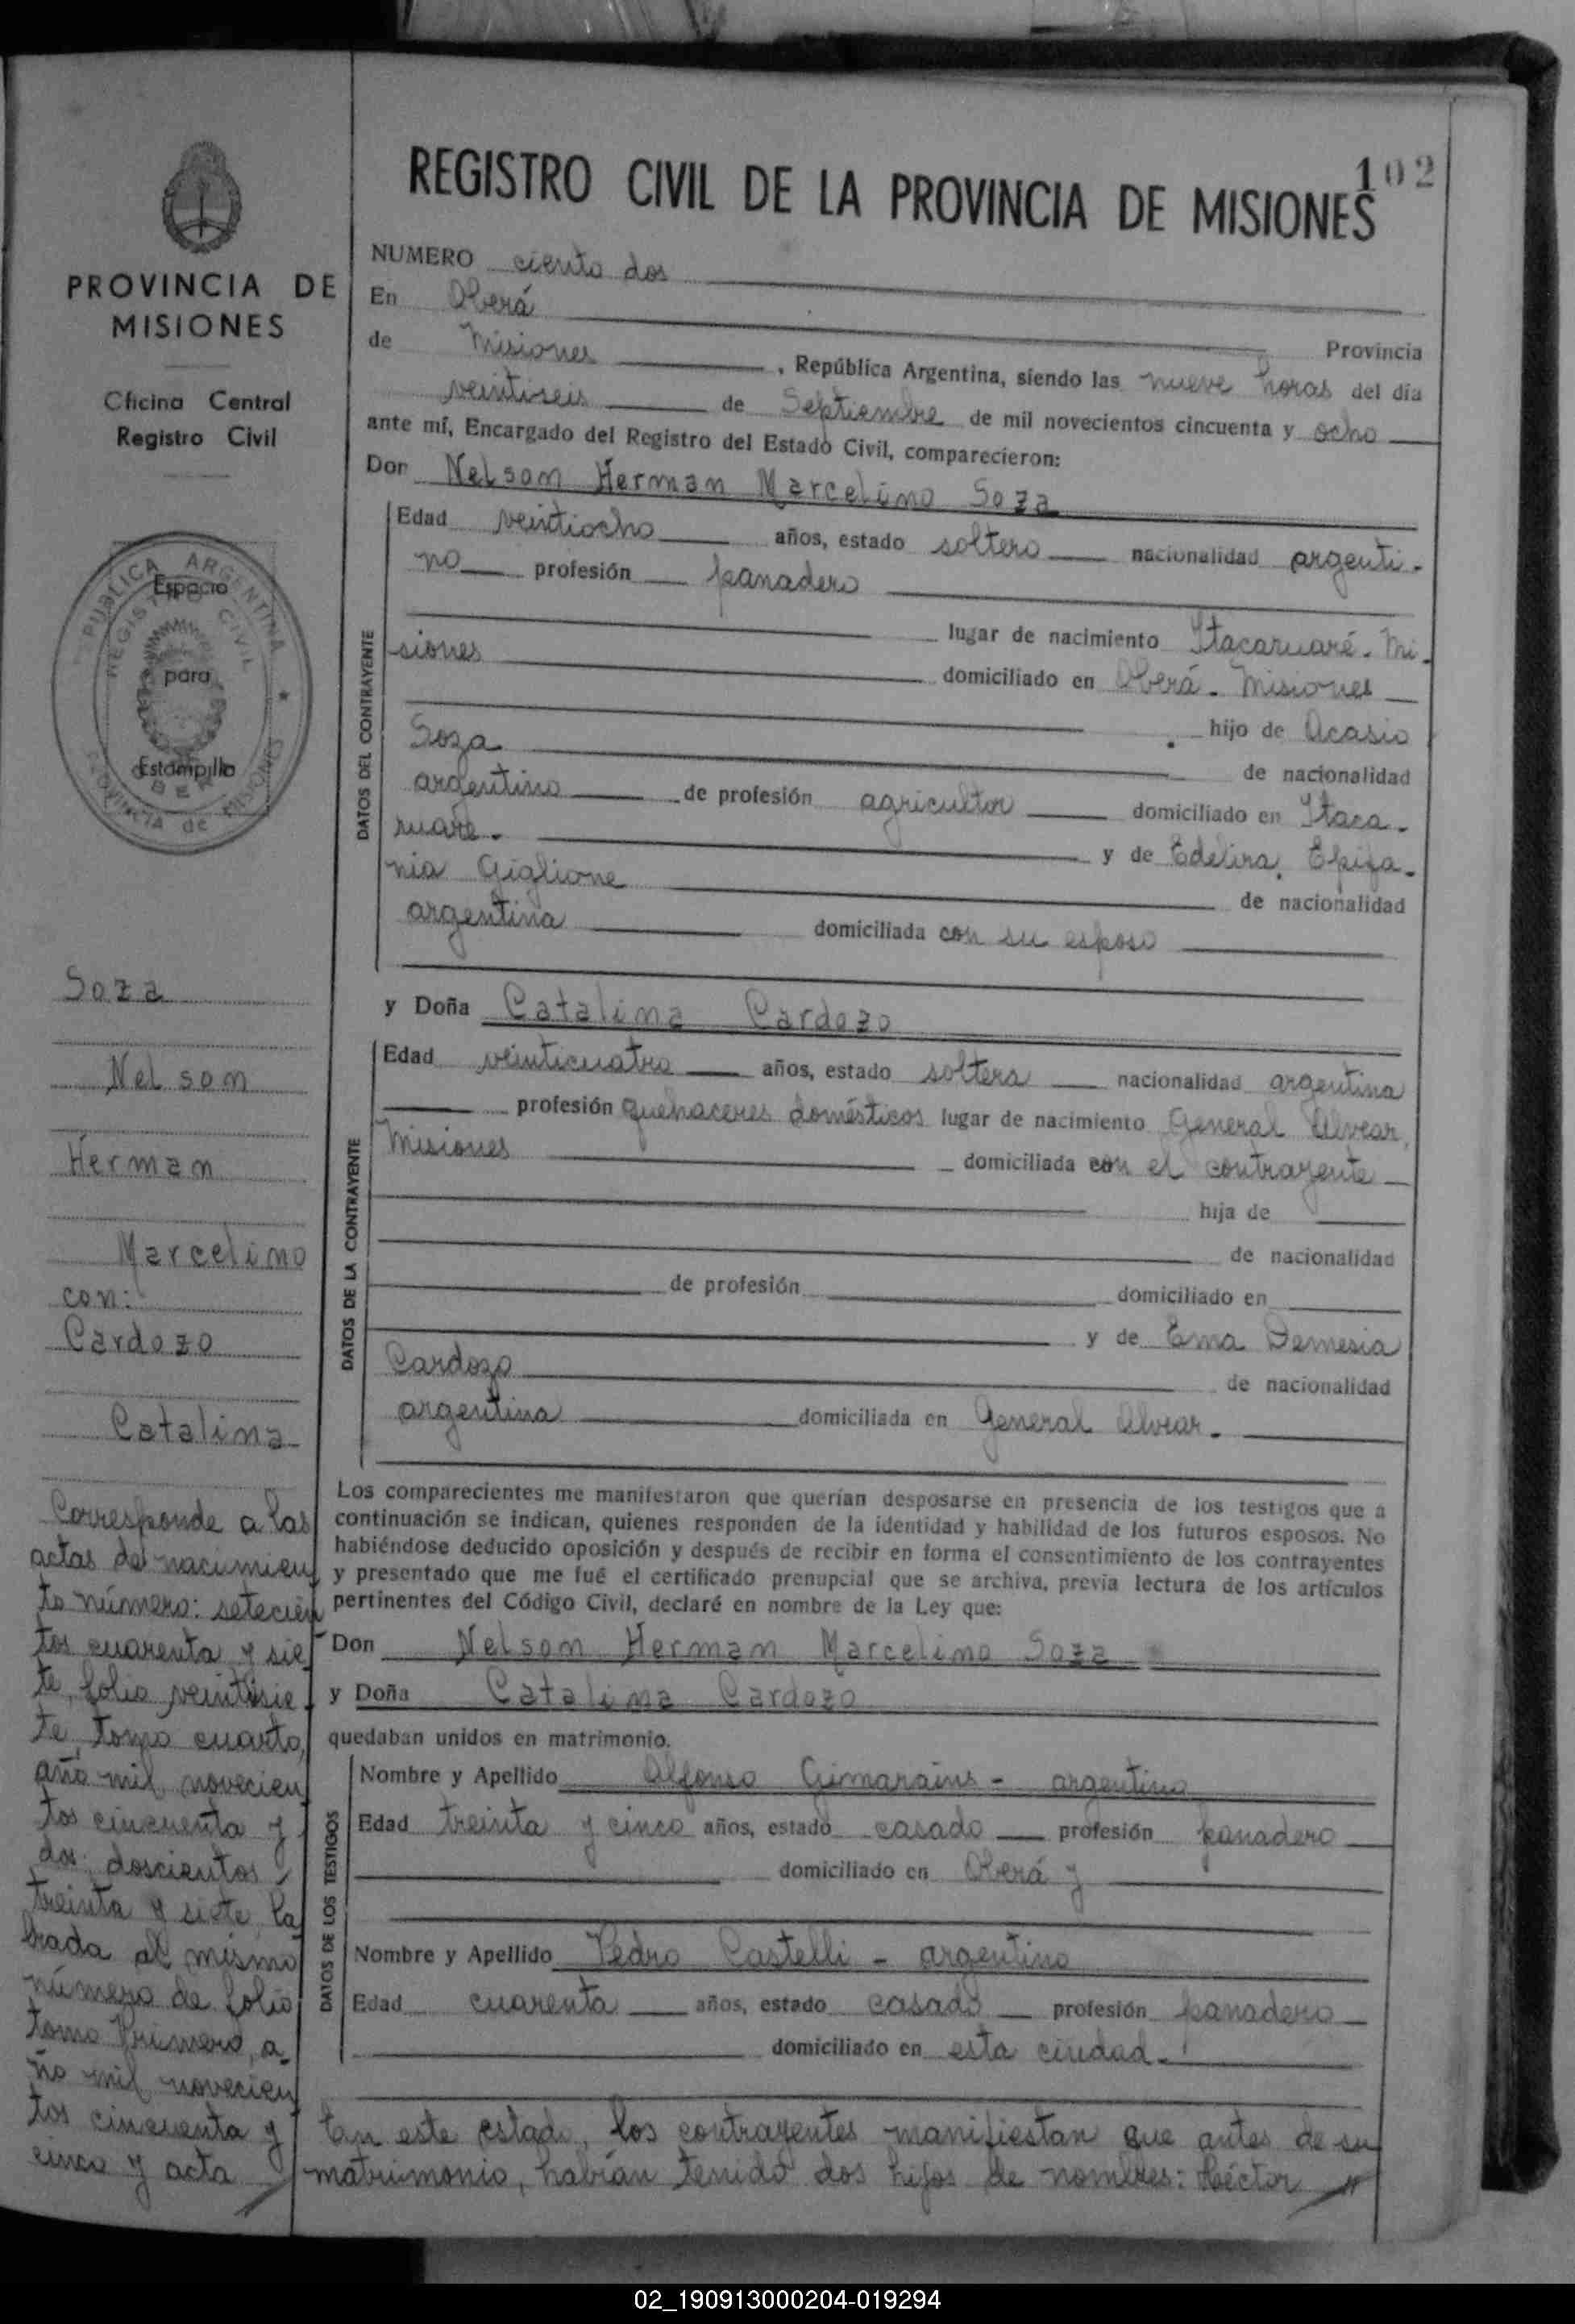 102
REGISTRO CIVIL DE LA PROVINCIA DE MISIONES
PROVINCIA DE
MISIONES
Oficina Central
Registro Civil
REPUBLICA ARGENTINA
REGISTRO CIVIL
Espacio
para
Estampilla
PROVINCIA de MISIONES
NUMERO ciento dos
En Oberá
Provincia
de Misiones, República Argentina, siendo las nueve horas del día
veintiseis de Septiembre de mil novecientos cincuenta y ocho
ante mí, Encargado del Registro del Estado Civil, comparecieron:
Don Nelson Herman Marcelino Soza
DATOS DEL CONTRAYENTE
Edad veintiocho años, estado soltero nacionalidad argenti-
no profesión panadero
lugar de nacimiento Itacaruaré. Mi-
siones domiciliado en Oberá. Misiones
hijo de Acasio
Soza de nacionalidad
argentino de profesión agricultor domiciliado en Itaca-
ruaré. y de Edelira, Epifa-
nia Giglione de nacionalidad
argentina domiciliada con su esposo
y Doña Catalina Cardozo
DATOS DE LA CONTRAYENTE
Edad veinticuatro años, estado soltera nacionalidad argentina
profesión quehaceres domésticos lugar de nacimiento General Alvear,
Misiones domiciliada con el contrayente
hija de
de nacionalidad
de profesión domiciliado en
y de Ema Demesia
Cardozo de nacionalidad
argentina domiciliada en General Alvear.
Los comparecientes me manifestaron que querían desposarse en presencia de los testigos que a
continuación se indican, quienes responden de la identidad y habilidad de los futuros esposos. No
habiéndose deducido oposición y después de recibir en forma el consentimiento de los contrayentes
y presentado que me fué el certificado prenupcial que se archiva, previa lectura de los artículos
pertinentes del Código Civil, declaré en nombre de la Ley que:
Don Nelson Herman Marcelino Soza
y Doña Catalina Cardozo
quedaban unidos en matrimonio.
DATOS DE LOS TESTIGOS
Nombre y Apellido Alfonso Gimarains - argentino
Edad treinta y cinco años, estado casado profesión panadero
domiciliado en Oberá y
Nombre y Apellido Pedro Castelli - argentino
Edad cuarenta años, estado casado profesión panadero
domiciliado en esta ciudad.
En este estado, los contrayentes manifiestan que antes de su
matrimonio, habían tenido dos hijos de nombres: Héctor
Soza
Nelson
Herman
Marcelino
con:
Cardozo
Catalina
Corresponde a las
actas de nacimien
to número: setecien
tos cuarenta y sie
te, folio veintisie
te, tomo cuarto,
año mil novecien
tos cincuenta y
dos; doscientos
treinta y siete, la
brada al mismo
número de folio
tomo Primero, a
ño mil novecien
tos cincuenta y
cinco y acta
02_190913000204-019294